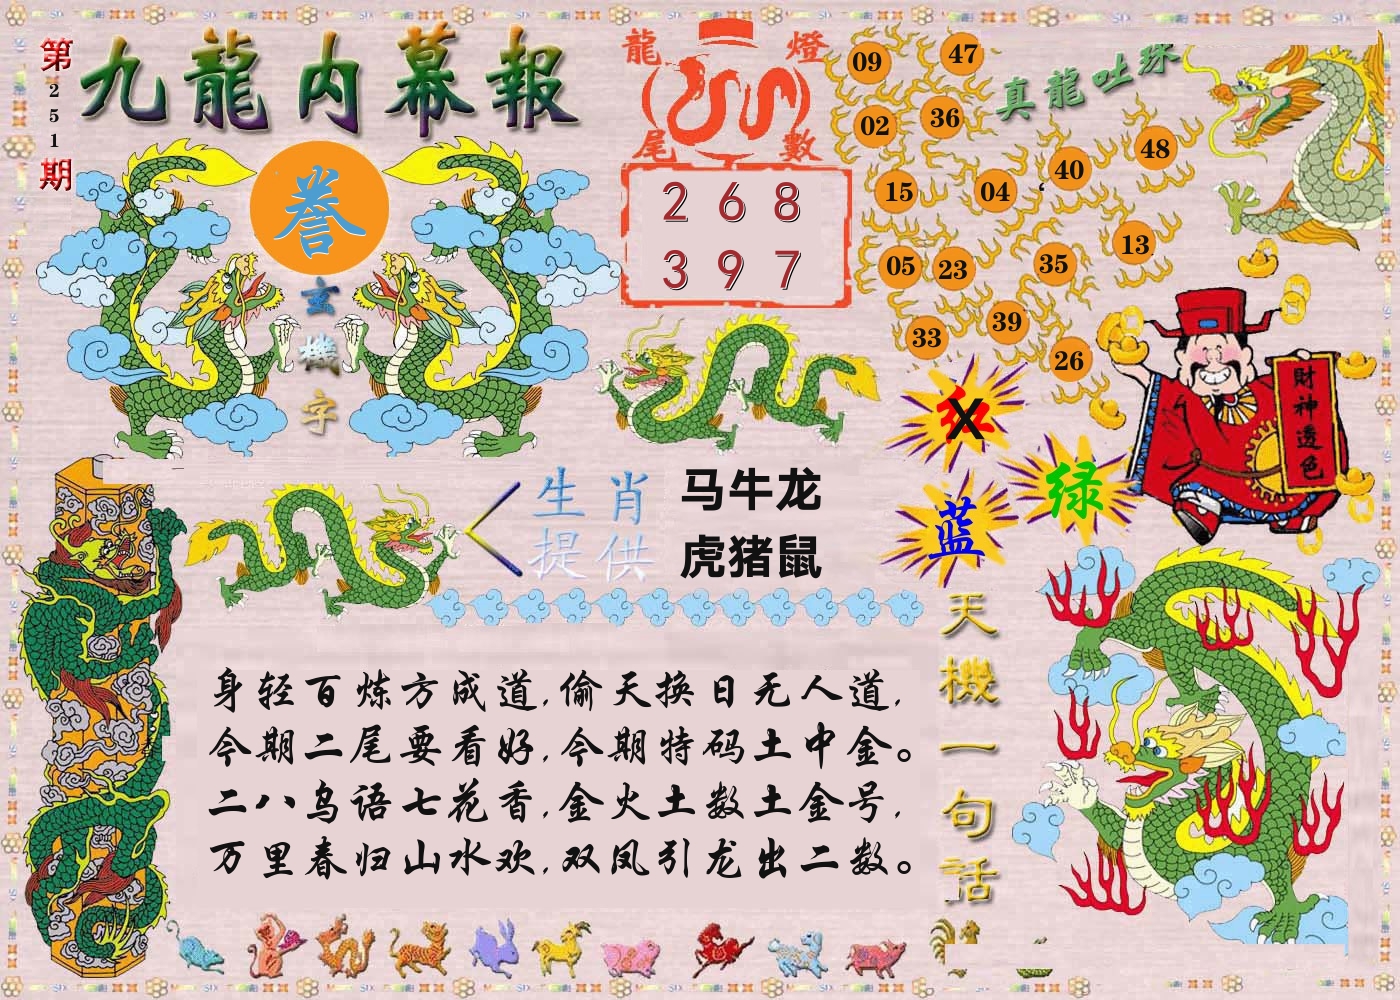 第251期
九龍内幕報
誉
玄機字
龍燈
尾數
2 6 8
3 9 7
真龍吐珠
09 47
02 36
15 04 40 48
05 23 35 13
33 39 26
红X
绿
蓝
財神透色
生肖
提供
马牛龙
虎猪鼠
身轻百炼方成道,偷天换日无人道,
今期二尾要看好,今期特码土中金。
二八鸟语七花香,金火土数土金号,
万里春归山水欢,双凤引龙出二数。
天機一句話